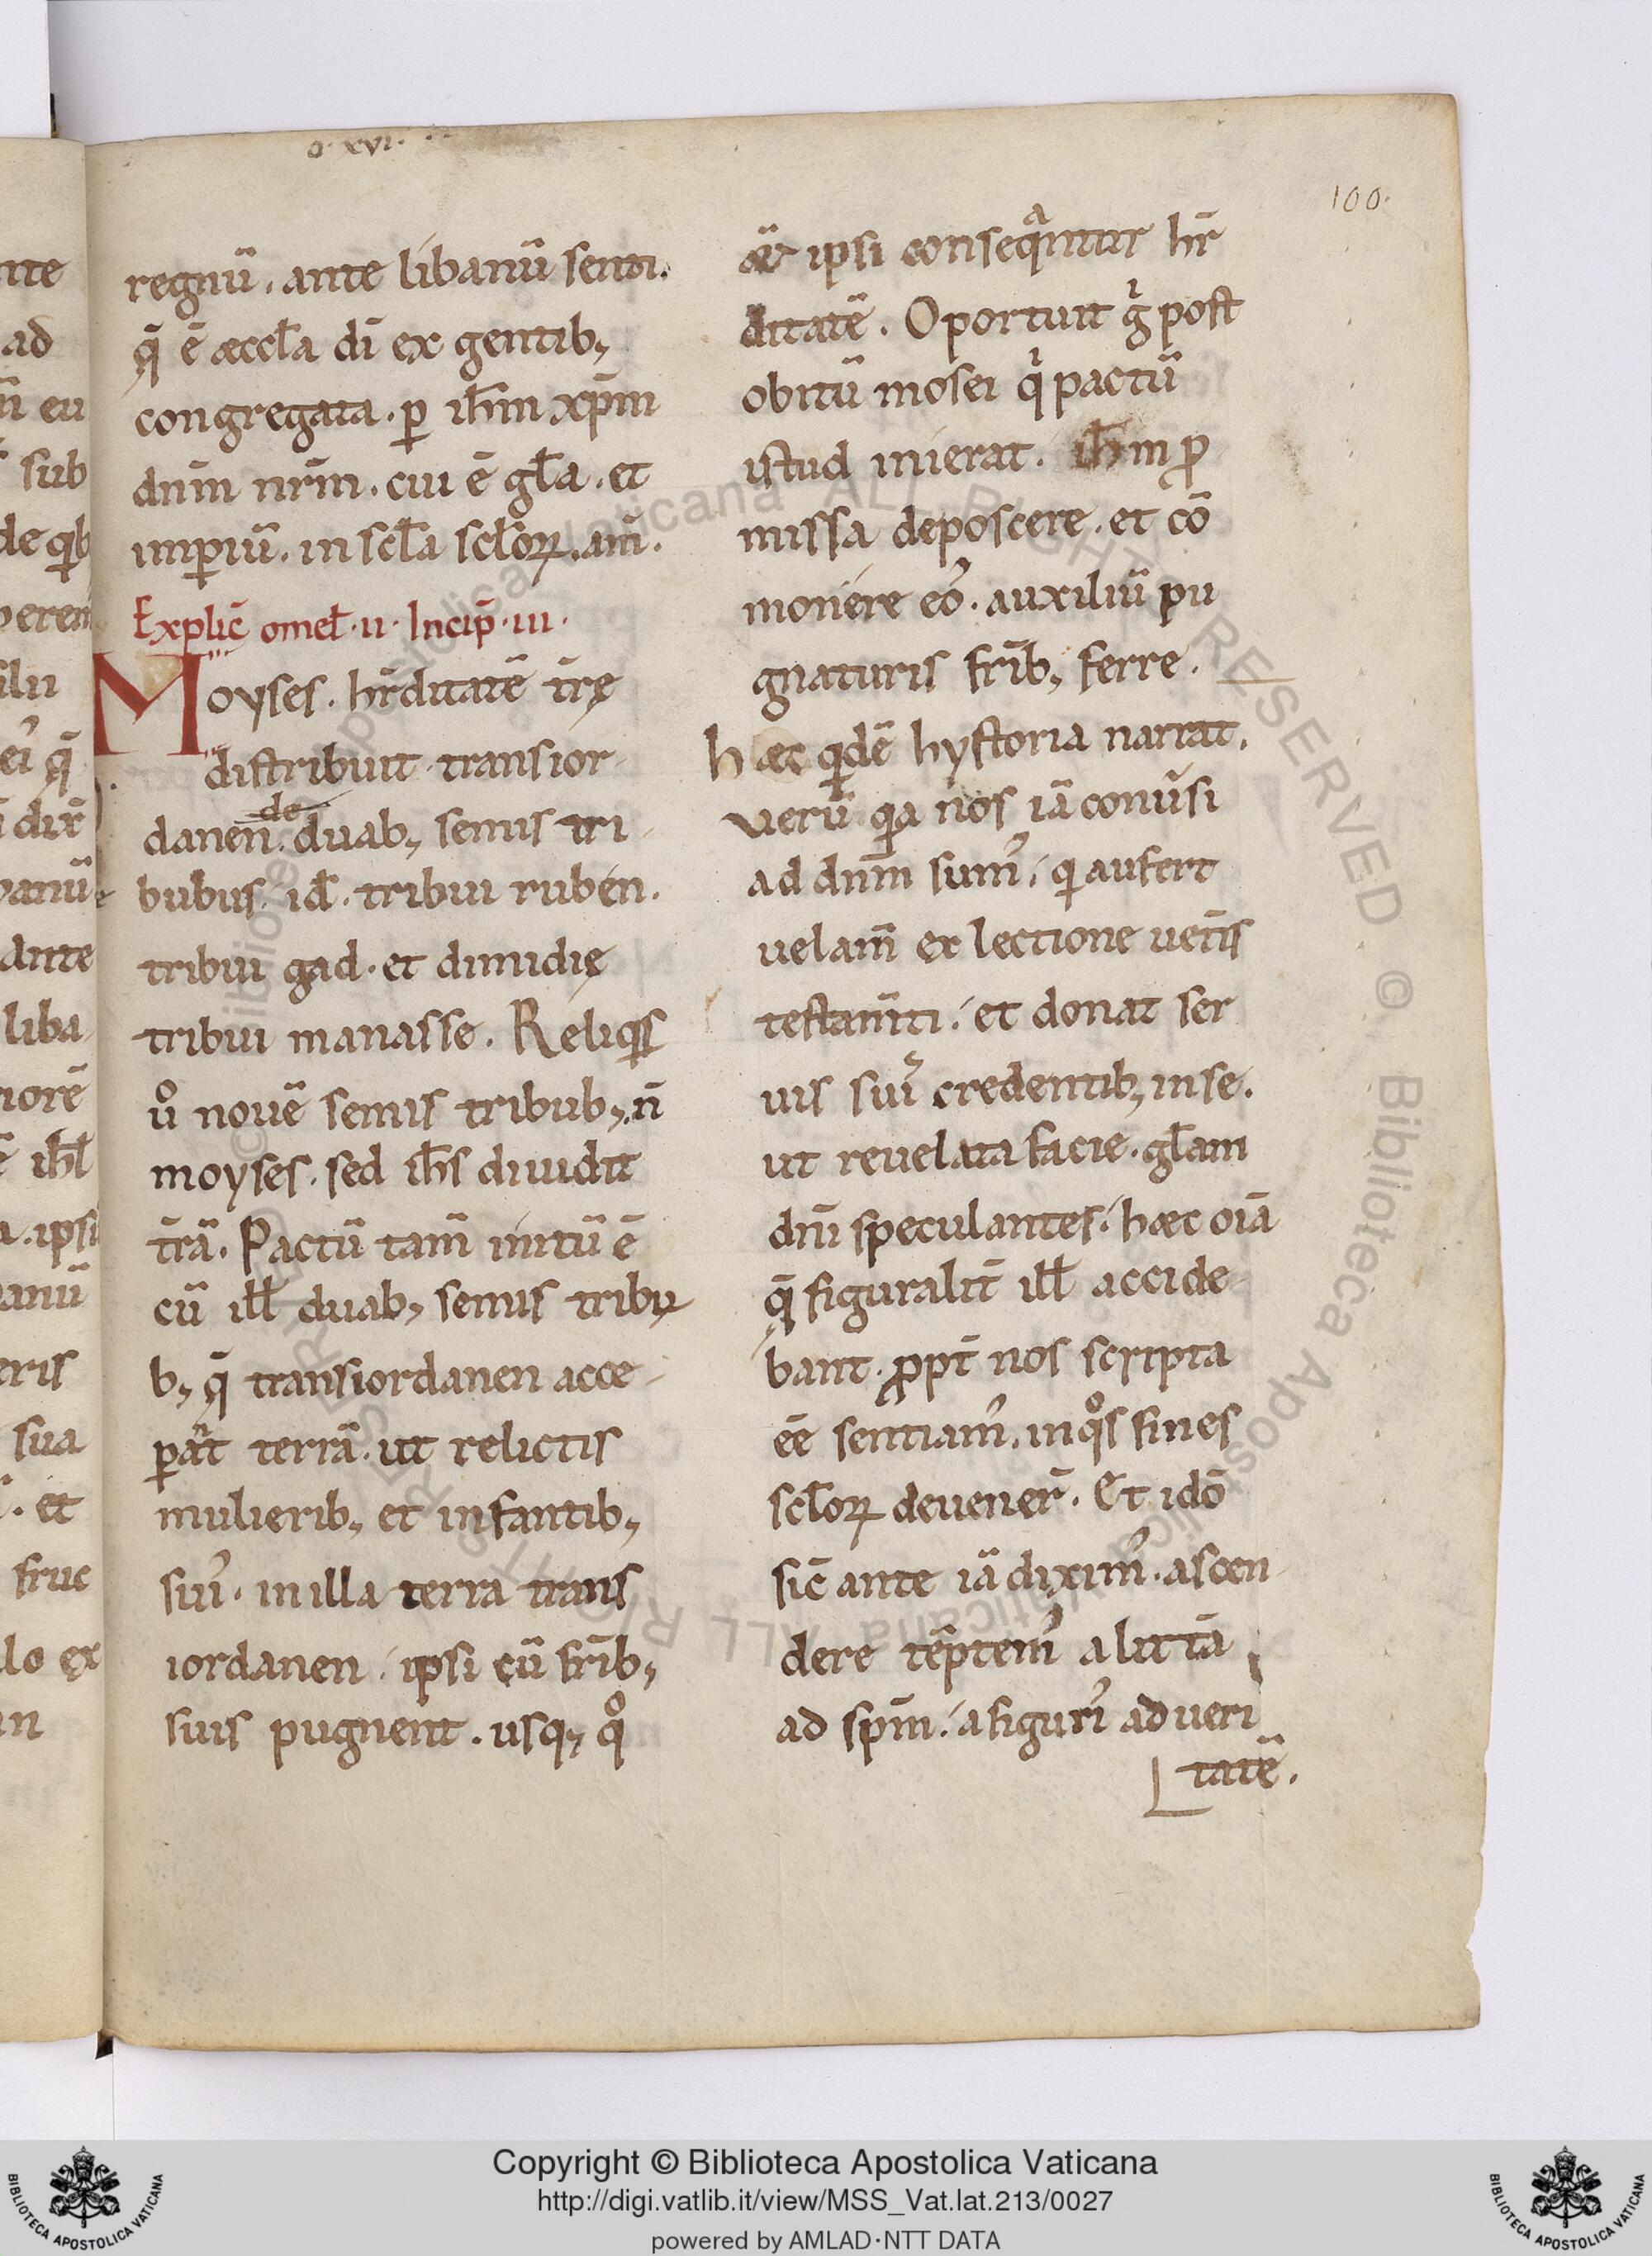 o. xvi.
100.
regnū. ante libanū senti.
q̄ ē æccl̄a dī ex gentib;
congregata. p̱ ih̄m xp̄m
dn̄m nr̄m. cui ē gl̄a. et
imp̱iū. in scl̄a scl̄oꝝ. am̄.
Explic̄ omel̄. ii. Incip̄. iii.
Moyses. hr̄ditatē tr̄ę
distribuit transior
danen. de duab; semis tri
bubus. id̄. tribui ruben.
tribui gad. et dimidię
tribui manasse. Reliqis
uͦ nouē semis tribub; n̄
moyses. sed ih̄s diuidit
tr̄ā. Pactū tam̄ initū ē
cū ill̄ duab; semis tribu
b; q̄ transiordanen acce
p̱at̄ terrā. ut relictis
mulierib; et infantib;
sui᾿. in illa terra trans
iordanen. ipsi cū fr̄ib;
suis pugnent. usq; qͦ
&̄ ipsi conseqͣntur hr̄
ditatē. Oportuit gͥ post
obitū mosei qͥ pactū
istud inierat. ih̄m ꝓ
missa deposcere. et cō
monere eo᾿. auxiliū pu
gnaturis fr̄ib; ferre.
hæc qdē hystoria narrat.
uerū qa nos iā conu̓si
ad dn̄m sum᾿. q aufert
uelam̄ ex lectione uet̄is
testam̄ti. et donat ser
uis sui᾿ credentib; in se.
ut reuelata facie. gl̄am
dn̄i speculantes. hæc oīa
q̄ figuralit̄ ill̄ accide
bant. ꝓpt̄ nos scripta
ēē sentiam᾿. in qͦs fines
scl̄oꝝ deuener̄. Et idō
sic̄ ante iā dixim᾿. ascen
dere tēptem᾿ a litt̄a
ad sp̄m. a figuri᾿ ad ueri
tatē.
Copyright © Biblioteca Apostolica Vaticana
http://digi.vatlib.it/view/MSS_Vat.lat.213/0027
powered by AMLAD·NTT DATA
BIBLIOTECA APOSTOLICA VATICANA
BIBLIOTECA APOSTOLICA VATICANA